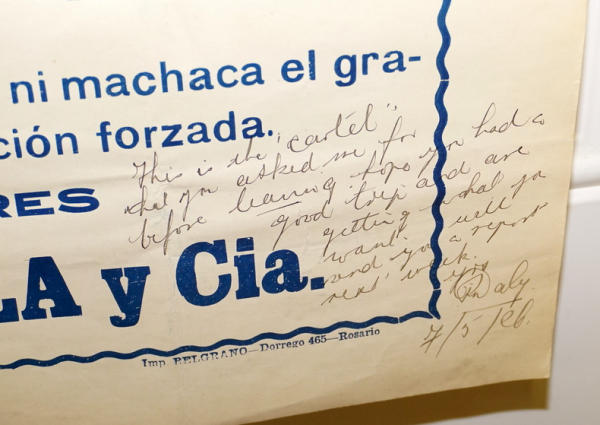 ni machaca el gra-
ción forzada.
RES
LA y Cia.
Imp. BELGRANO—Dorrego 465—Rosario
This is the "cartel"
that you asked me for
before leaving hope you had a
good trip and are
getting what you
want. well
send you a report
next week.
Daly.
7/5 Feb.